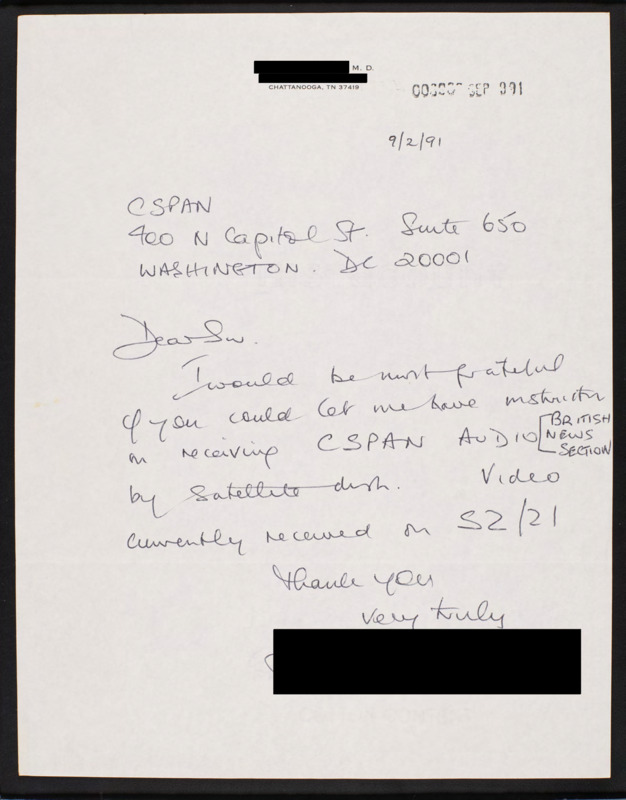 M. D.
CHATTANOOGA, TN 37419
SEP 991
9/2/91
CSPAN
400 N Capitol St. Suite 650
WASHINGTON. DC 20001
Dear Sir.
I would be most grateful
if you could let me have instruction
on receiving CSPAN AUDIO [BRITISH NEWS SECTION
by Satellite dish. Video
currently received on S2/21
Thank you
Very truly